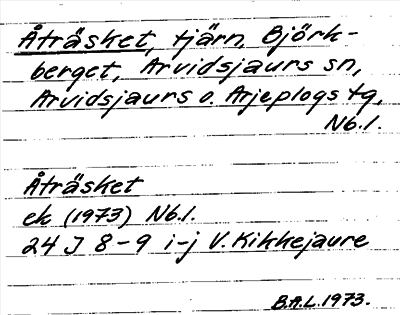 Åträsket, tjärn, Björk-
berget, Arvidsjaurs sn,
Arvidsjaurs o. Arjeplogs tg,
Nb.l.
Åträsket
ek (1973) Nb.l.
24 J 8-9 i-j V. Kikkejaure
B.A.L. 1973.